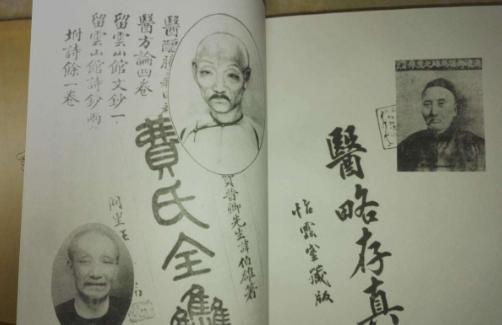 醫略存真
怡雲室藏版
晉卿先生諱伯雄著
費氏全雧
醫醇
醫方論四卷
留雲山館文鈔一
留雲山館詩鈔兩
坿詩餘一卷
同里王